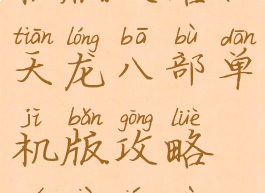 tiān lóng bā bù dān
天龙八部单
jī bǎn gōng lüè
机版攻略